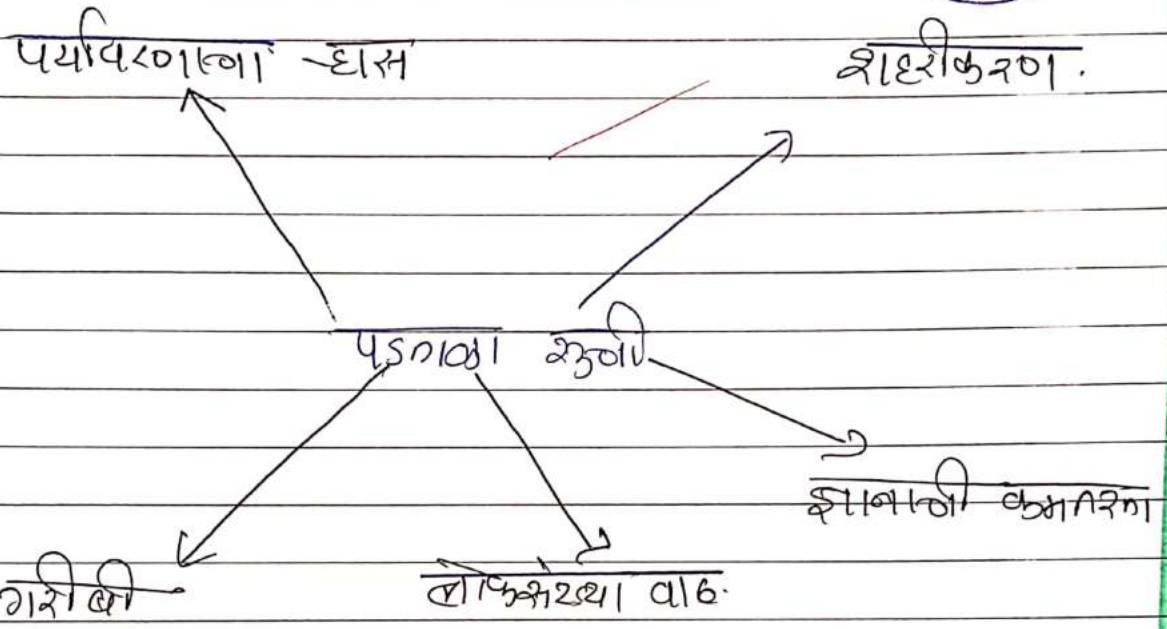 पर्यावरणाचा ऱ्हास
शहरीकरण.
पडताळा सूची
ज्ञानाची कमतरता
गरीबी
लोकसंख्या वाढ.